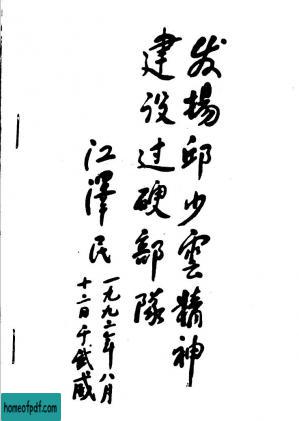 发揚邱少雲精神
建设过硬部隊
江澤民
一九九二年八月
十二日于武威
homeofpdf.com